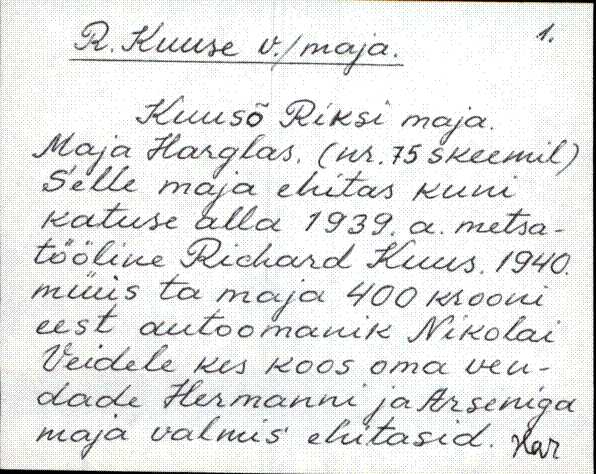 1.
R. Kuuse v./maja.
Kuusõ Riksi maja.
Maja Harglas. (nr. 75 skeemil)
Selle maja ehitas kuni
katuse alla 1939. a. metsa-
tööline Richard Kuus. 1940.
müüs ta maja 400 krooni
eest autoomanik Nikolai
Veidele kes koos oma ven-
dade Hermanni ja Arseniga
maja valmis ehitasid. Har